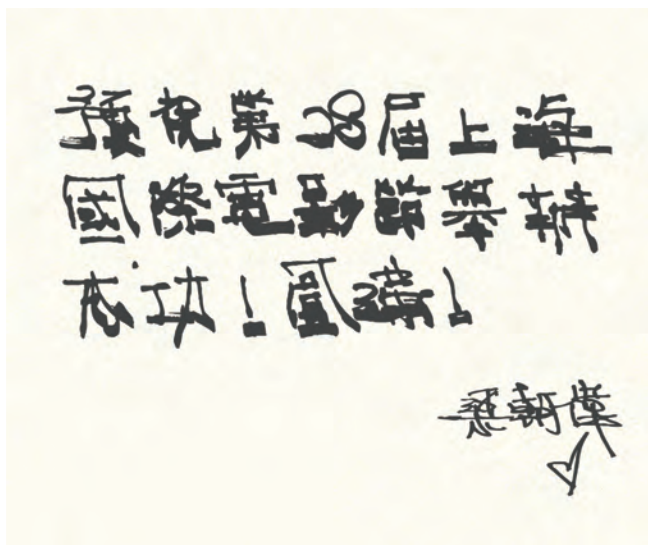 預祝第28屆上海
國際電影節舉辦
成功！圓滿！